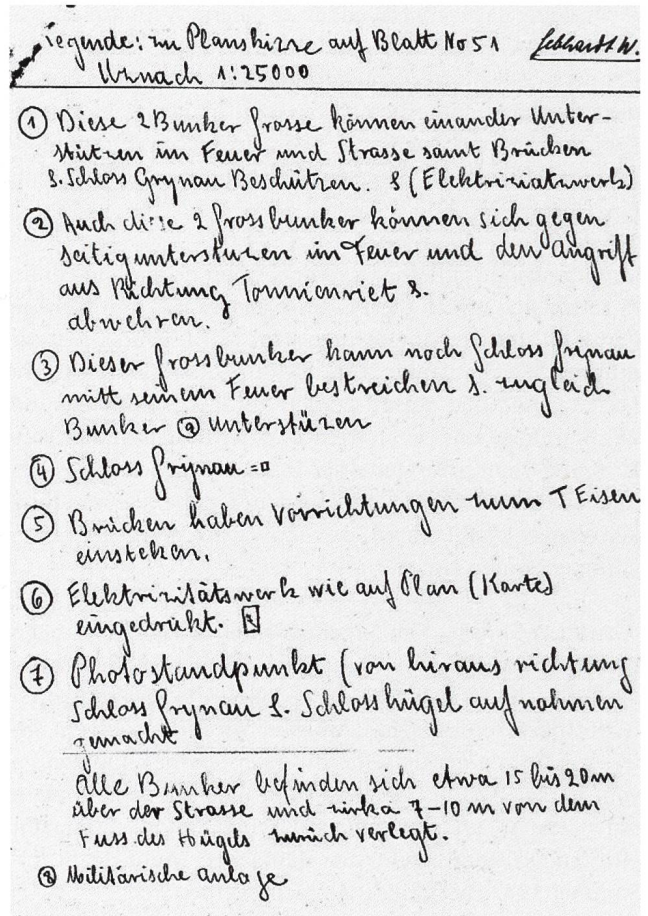 Legende: zu Planskizze auf Blatt No 51 Gebhardt W.
Uznach 1:25000
① Diese 2 Bunker Grosse können einander Unter-
stützen im Feuer und Strasse samt Brücken
&. Schloss Grynau Beschützen. & (Elektriziatzwerk)
② Auch diese 2 Grossbunker können sich gegen
seitig unterstuzen im Feuer und den Angriff
aus Richtung &.
abwehren.
③ Dieser Grossbunker kann noch Schloss Grinau
mitt seinem Feuer bestreichen &. zugleich
Bunker unterstüzen
④ Schloss Grÿnau =▫
⑤ Brücken haben Vorrichtungen zum T Eisen
einsteken.
⑥ Elektrizitätswerk wie auf Plan (Karte)
eingedrükt.
⑦ Photostandpunkt (von hiraus richtung
Schloss Grynau &. Schlosshügel aufnahmen
gemacht
Alle Bunker befinden sich etwa 15 bis 20 m
über der Strasse und zirka 7-10 m von dem
Fuss des Hügels zurüch verlegt.
⑧ Militärische anlage